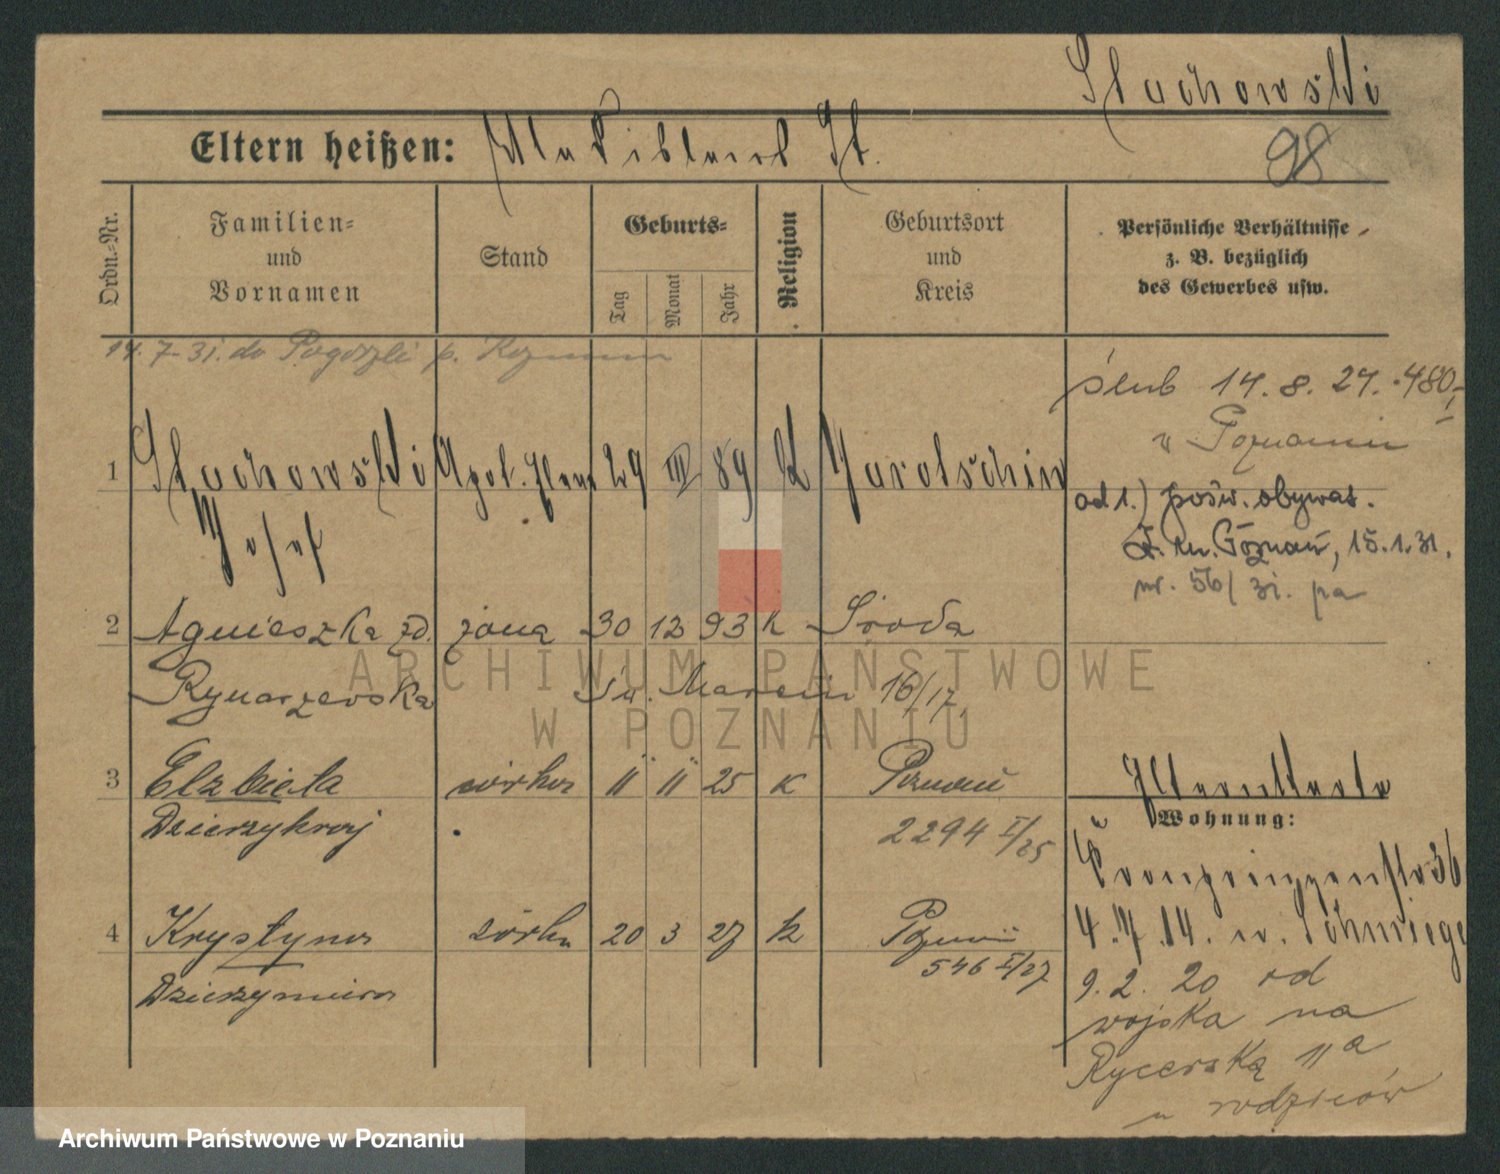 Stachowski
98
Eltern heißen:
St.
Ordn.-Nr.
Familien-
und
Vornamen
Stand
Geburts-
Tag
Monat
Jahr
Religion
Geburtsort
und
Kreis
Persönliche Verhältnisse
z. B. bezüglich
des Gewerbes usw.
14. 7. 31. do Pogorzeli p.
ślub 14. 8. 24. 480
w Poznaniu
1 Stachowski 29 III 89 k Jarotschin
Josef
ad 1.) pośw. obywat.
Poznań, 15.1.31.
nr. 56/31.
2 Agnieszka zd. żona 30 12 93 k Środa
Rynarzewska Św. Marcin 16/17.
3 Elżbieta córka 11 11 25 k Poznań
Dzierzykraj 2294 I/25
4 Krystyna córka 20 3 27 k Poznań
Dzierzymira 546 I/27
Wohnung:
Kronprinzenstr 36
4. 14. w.
9. 2. 20 od
wojska na
Rycerską 11a
u rodziców
ARCHIWUM PAŃSTWOWE
W POZNANIU
Archiwum Państwowe w Poznaniu